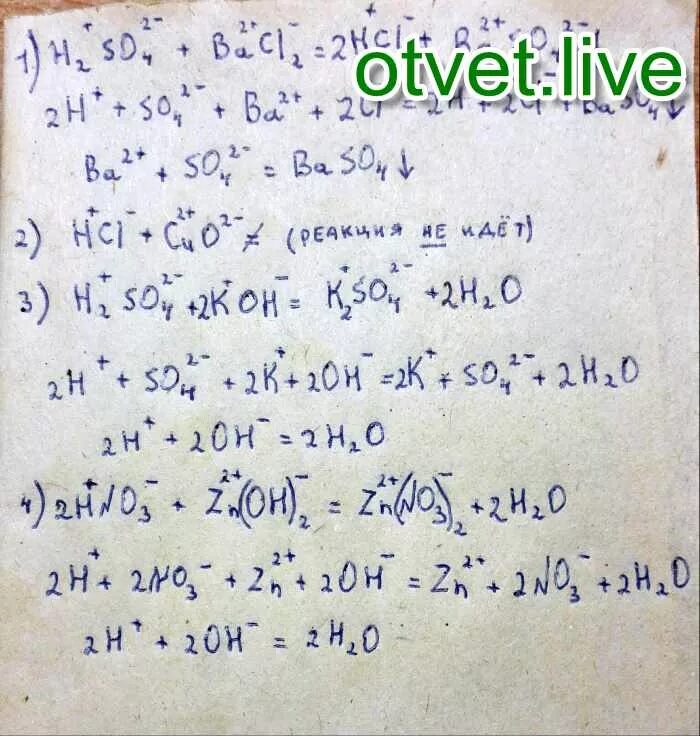 1) H₂⁺SO₄²⁻ + Ba²⁺Cl₂⁻ = 2H⁺Cl⁻ +
otvet.live
2H⁺ + SO₄²⁻ + Ba²⁺ + 2Cl⁻ = 2H⁺ + 2Cl⁻ + BaSO₄↓
Ba²⁺ + SO₄²⁻ = BaSO₄↓
2) H⁺Cl⁻ + Cu²⁺O²⁻ ≠ (РЕАКЦИЯ НЕ ИДЁТ)
3) H₂⁺SO₄²⁻ + 2K⁺OH⁻ = K₂⁺SO₄²⁻ + 2H₂O
2H⁺ + SO₄²⁻ + 2K⁺ + 2OH⁻ = 2K⁺ + SO₄²⁻ + 2H₂O
2H⁺ + 2OH⁻ = 2H₂O
4) 2H⁺NO₃⁻ + Zn²⁺(OH)₂⁻ = Zn²⁺(NO₃)₂⁻ + 2H₂O
2H⁺ + 2NO₃⁻ + Zn²⁺ + 2OH⁻ = Zn²⁺ + 2NO₃⁻ + 2H₂O
2H⁺ + 2OH⁻ = 2H₂O